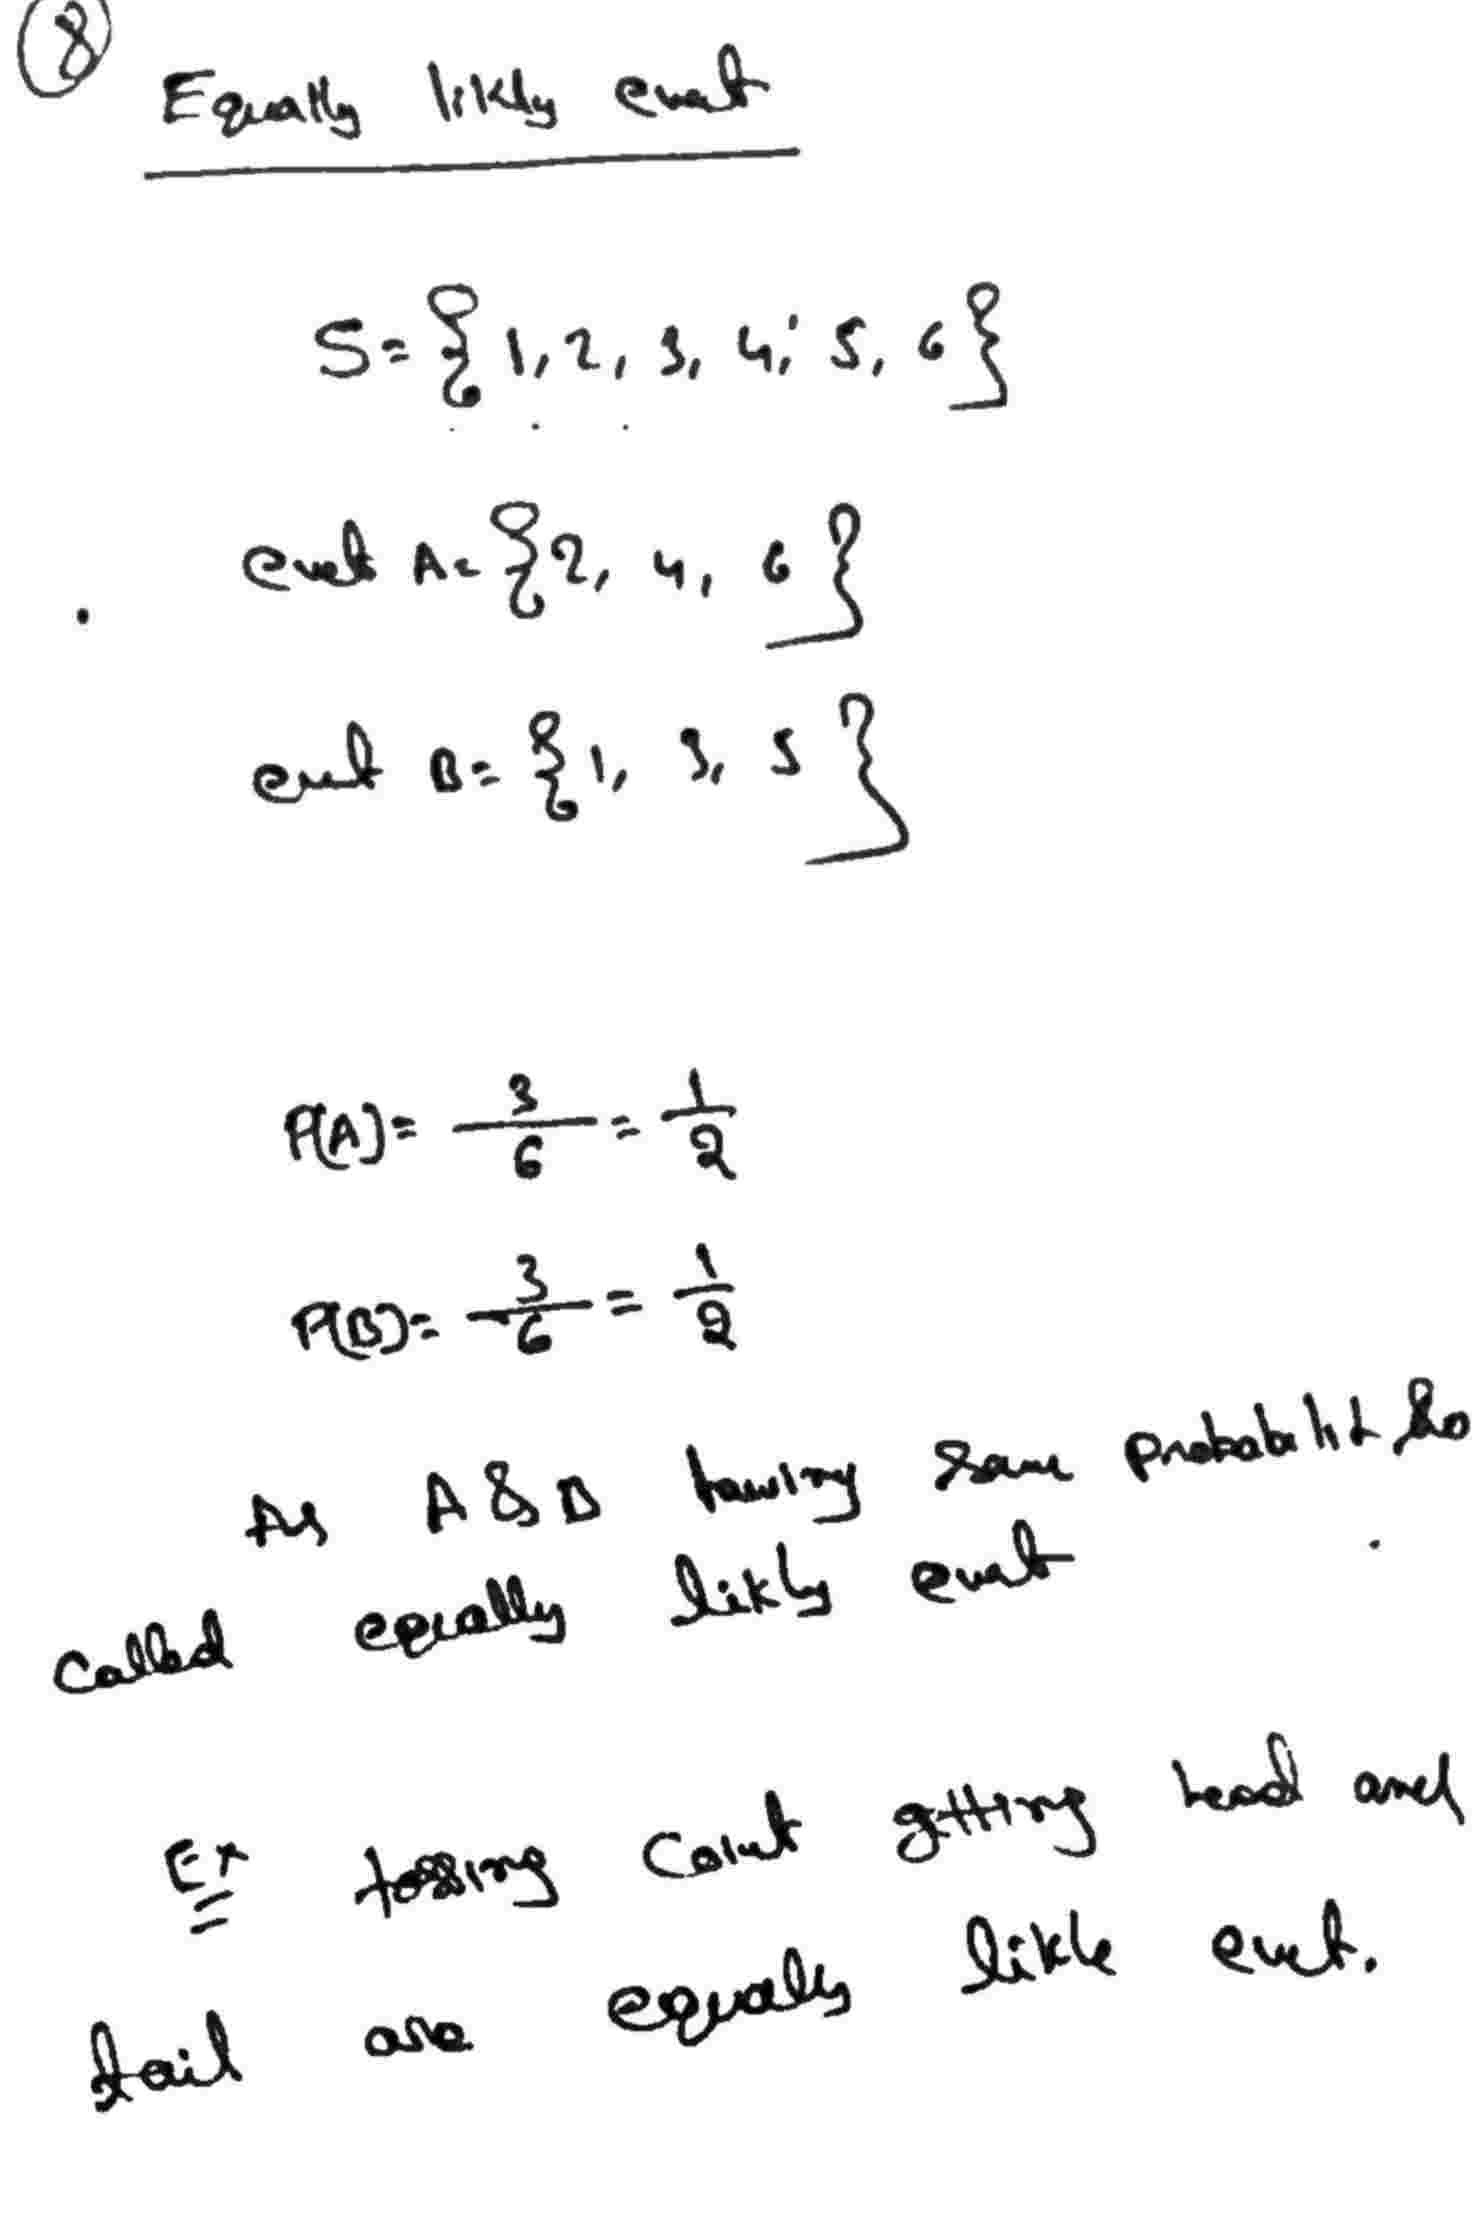 8
Equally likly event
S = { 1, 2, 3, 4, 5, 6 }
event A = { 2, 4, 6 }
event B = { 1, 3, 5 }
P(A) = 3/6 = 1/2
P(B) = 3/6 = 1/2
As A & B having same probabilit so
called equally likly event
Ex tossing coint getting head and
tail are equaly likle event.